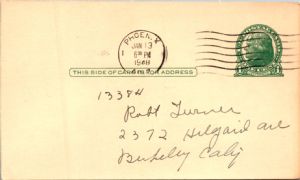 PHOENIX
JAN 13
6 PM
1948
ARIZ.
THIS SIDE OF CARD IS FOR ADDRESS
13384
Robt Turner
2372 Hilgard ave
Berkeley Calif